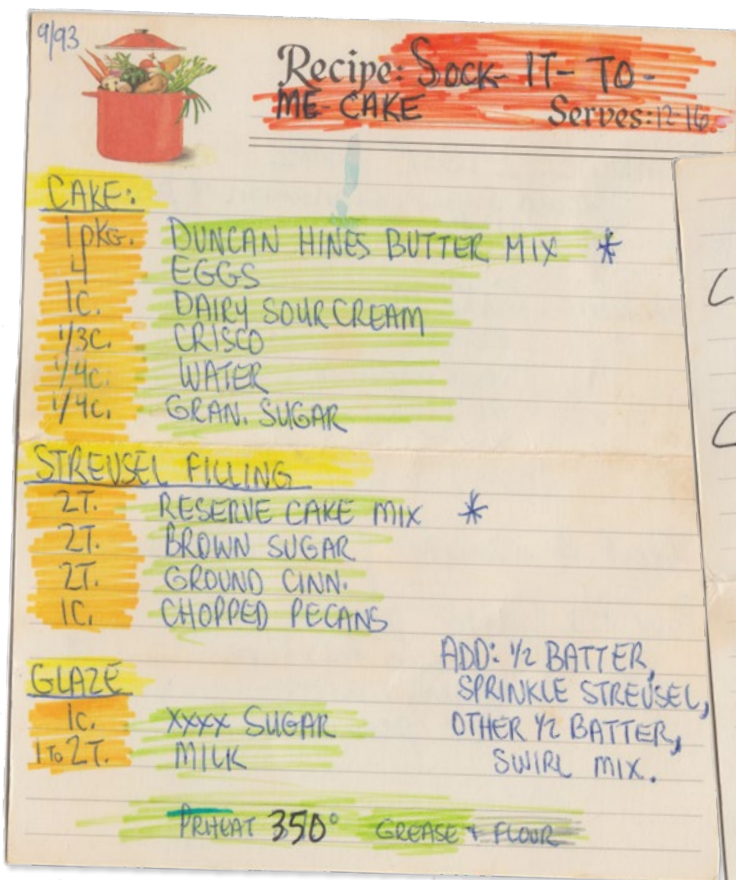 9/93
Recipe: SOCK-IT-TO-
ME-CAKE Serves: 12-16
CAKE:
1 pKG. DUNCAN HINES BUTTER MIX *
4 EGGS
1c. DAIRY SOUR CREAM
1/3c. CRISCO
1/4c. WATER
1/4c. GRAN. SUGAR
STREUSEL FILLING
2T. RESERVE CAKE MIX *
2T. BROWN SUGAR
2T. GROUND CINN.
1C. CHOPPED PECANS
ADD: 1/2 BATTER,
SPRINKLE STREUSEL,
OTHER 1/2 BATTER,
SWIRL MIX.
GLAZE
1c. XXXX SUGAR
1 TO 2T. MILK
PRHEAT 350° GREASE + FLOUR